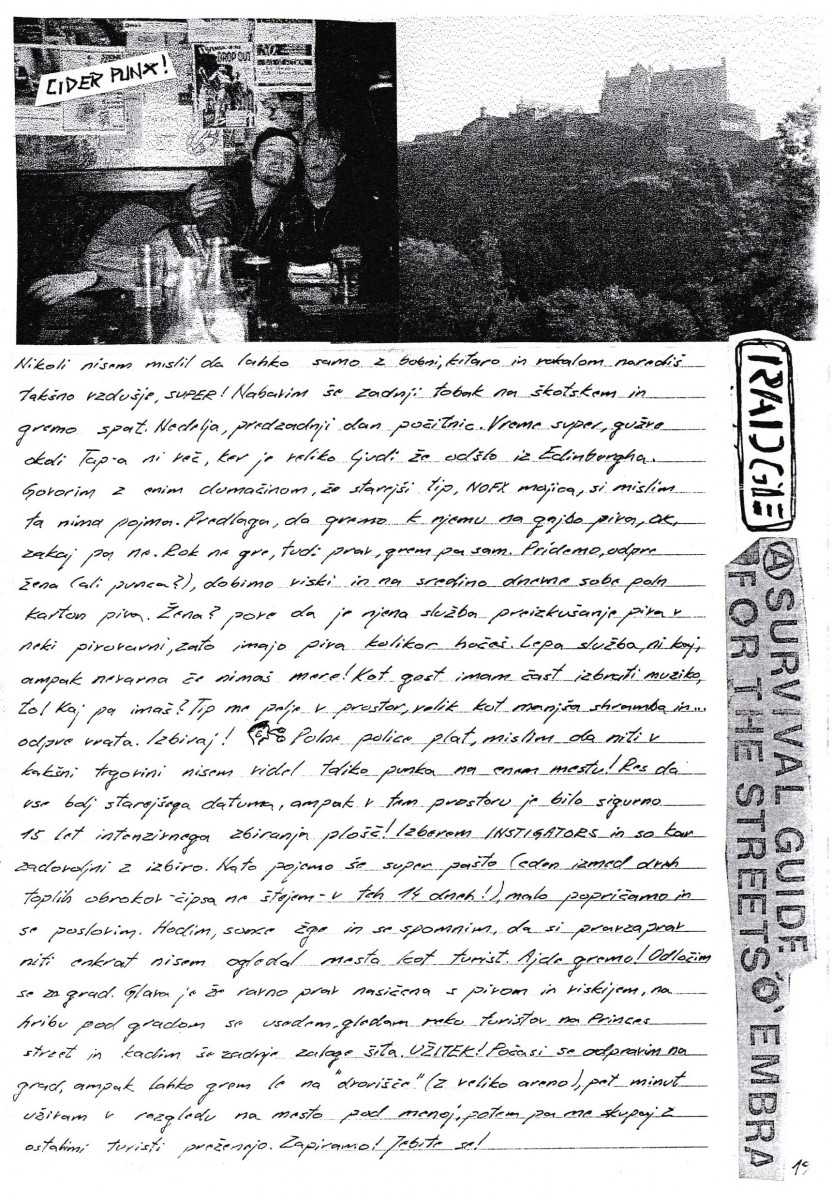 CIDER PUNX!
DROP OUT
Nikoli nisem mislil da lahko samo z bobni, kitaro in vokalom narediš
takšno vzdušje, SUPER! Nabavim še zadnji tobak na škotskem in
gremo spat. Nedelja, predzadnji dan počitnic. Vreme super, gužve
okoli Tap-a ni več, ker je veliko ljudi že odšlo iz Edinburgha.
Govorim z enim domačinom, že starejši tip, NOFX majica, si mislim
ta nima pojma. Predlaga, da gremo k njemu na gajbo piva, OK,
zakaj pa ne. Rok ne gre, tudi prav, grem pa sam. Pridemo, odpre
žena (ali punca?), dobimo viski in na sredino dnevne sobe poln
karton piva. Žena? pove da je njena služba preizkušanje piva v
neki pivovarni, zato imajo piva kolikor hočeš. Lepa služba, ni kaj,
ampak nevarna če nimaš mere! Kot gost imam čast izbrati muziko,
to! Kaj pa imaš? Tip me pelje v prostor, velik kot manjša shramba in...
odpre vrata. Izbiraj! Polne police plat, mislim da niti v
kakšni trgovini nisem videl toliko punka na enem mestu! Res da
vse bolj starejšega datuma, ampak v tem prostoru je bilo sigurno
15 let intenzivnega zbiranja plošč! Izberem INSTIGATORS in so kar
zadovoljni z izbiro. Nato pojemo še super pašto (eden izmed dveh
toplih obrokov -čipsa ne štejem- v teh 14 dneh!), malo popričamo in
se poslovim. Hodim, sonce žge in se spomnim, da si pravzaprav
niti enkrat nisem ogledal mesta kot turist. Ajde gremo! Odločim
se za grad. Glava je že ravno prav nasičena s pivom in viskijem, na
hribu pod gradom se usedem, gledam reko turistov na Princes
street in kadim še zadnje zaloge šita. UŽITEK! Počasi se odpravim na
grad, ampak lahko grem le na "dvorišče" (z veliko areno), pet minut
uživam v razgledu na mesto pod menoj, potem pa me skupaj z
ostalimi turisti preženejo. Zapiramo! Jebite se!
RADGE
A SURVIVAL GUIDE
FOR THE STREETS O' EMBRA
19